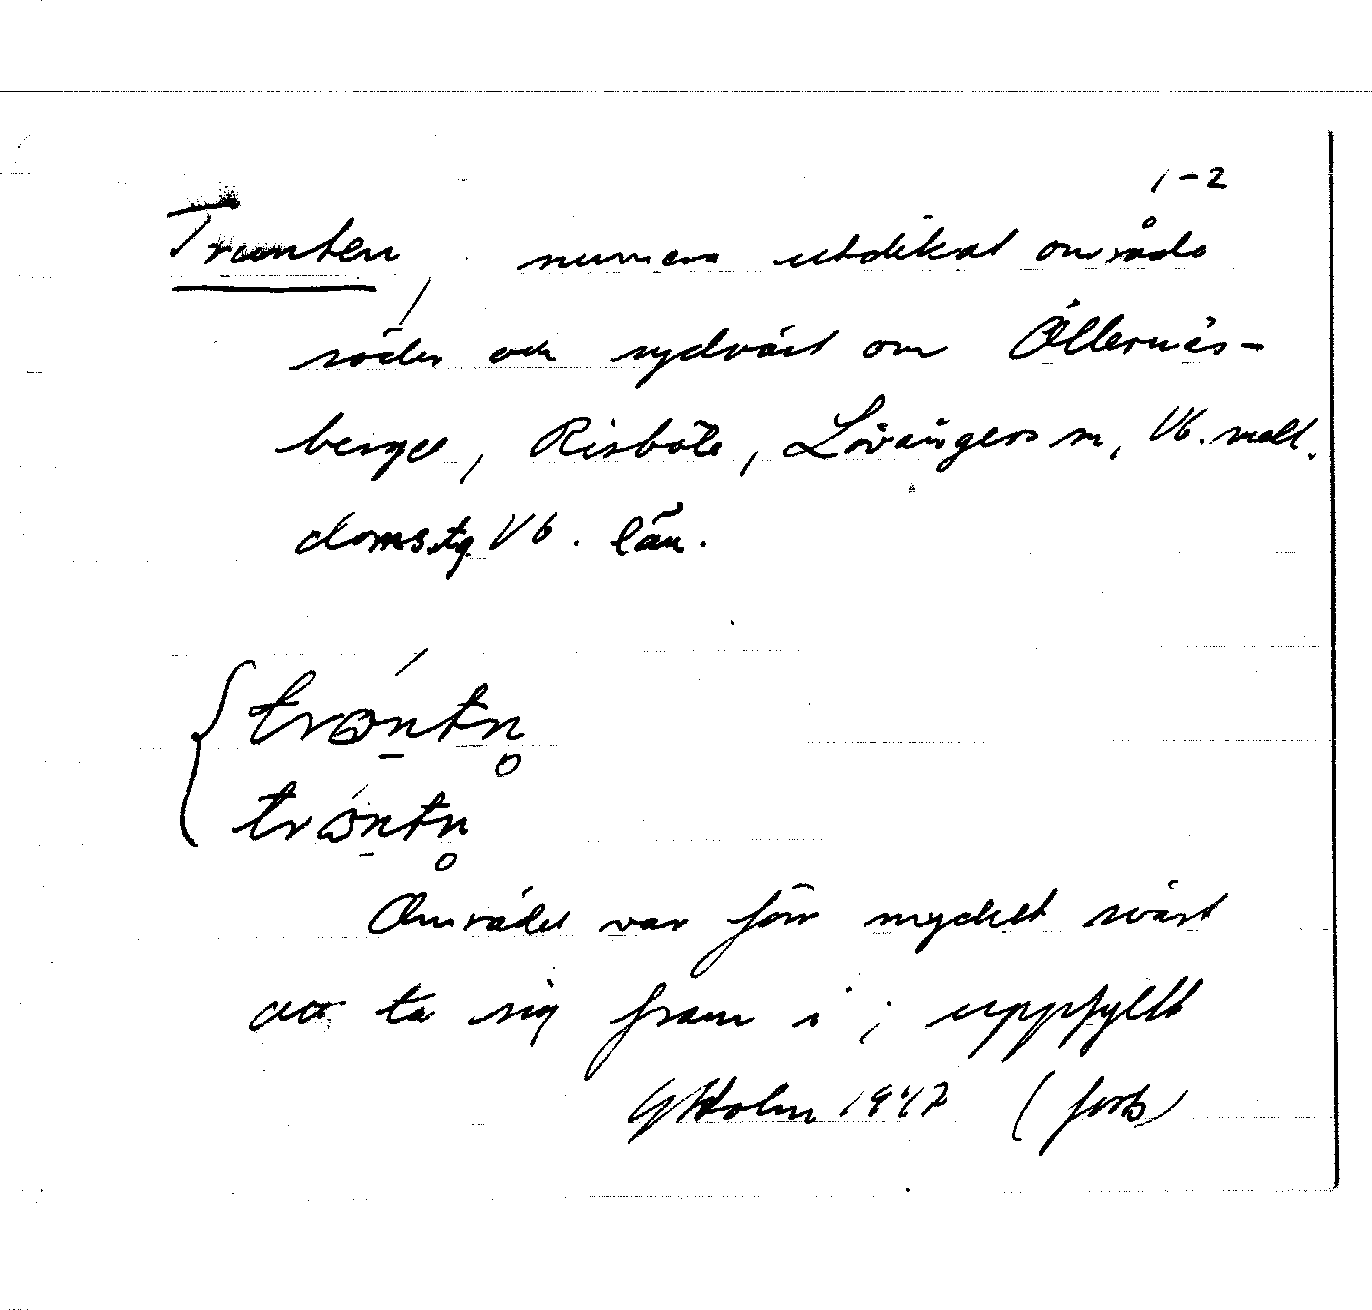 1-2
Tranten, numera utdikat område
söder och sydväst om Ällernäs-
berget, Risböle, Lövångers sn, Vb.
domstg Vb. län.
Området var förr mycket svårt
att ta sig fram i; uppfyllt
GHolm 1947 (forts)